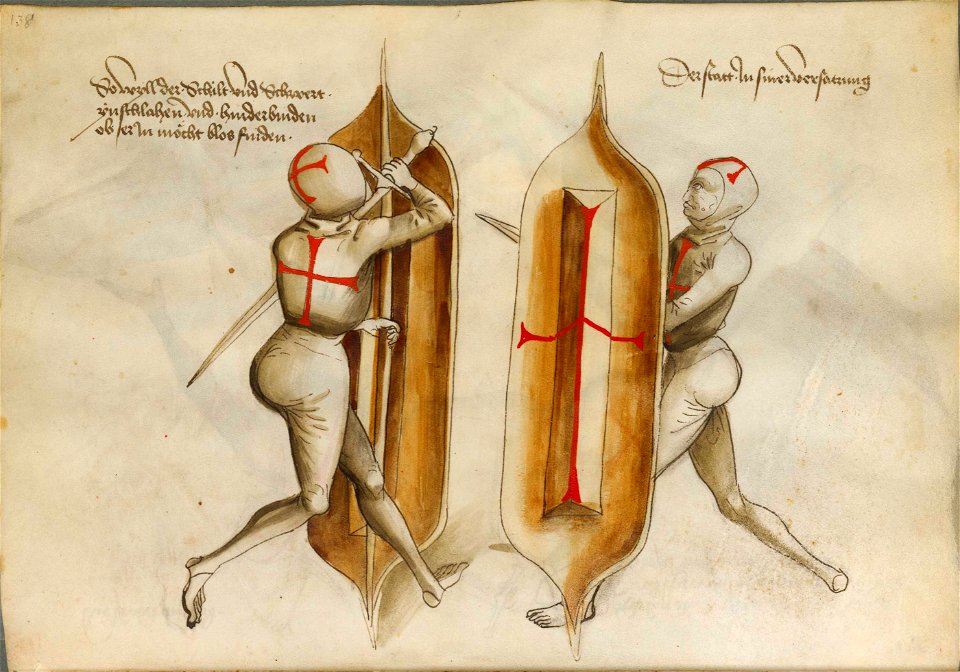 138
So wyll der Schilt und Schwert
und hinderbinden
ob er In möcht blos finden.
Der statt In siner versatzung